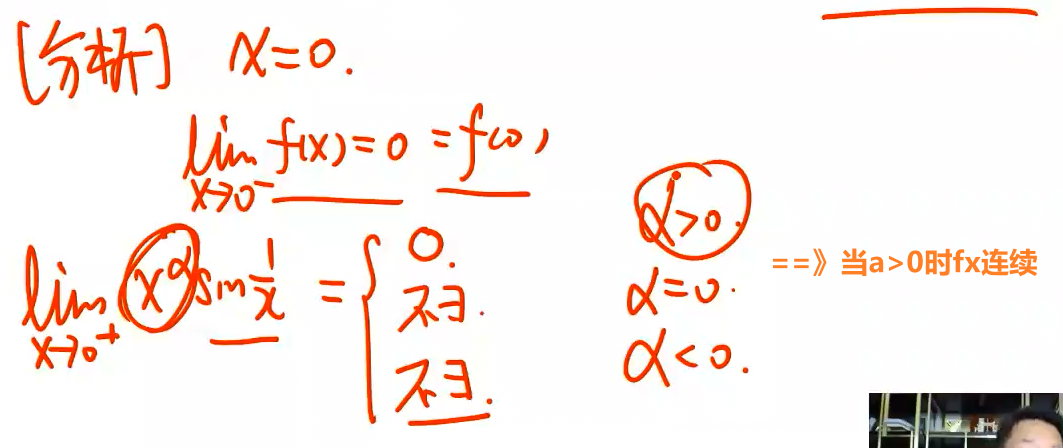 [分析] x=0.
lim x→0⁻ f(x)=0 =f(0),
lim x→0⁺ x^α sin 1/x = { 0. α>0.
不∃. α=0.
不∃. α<0.
==》当a>0时fx连续